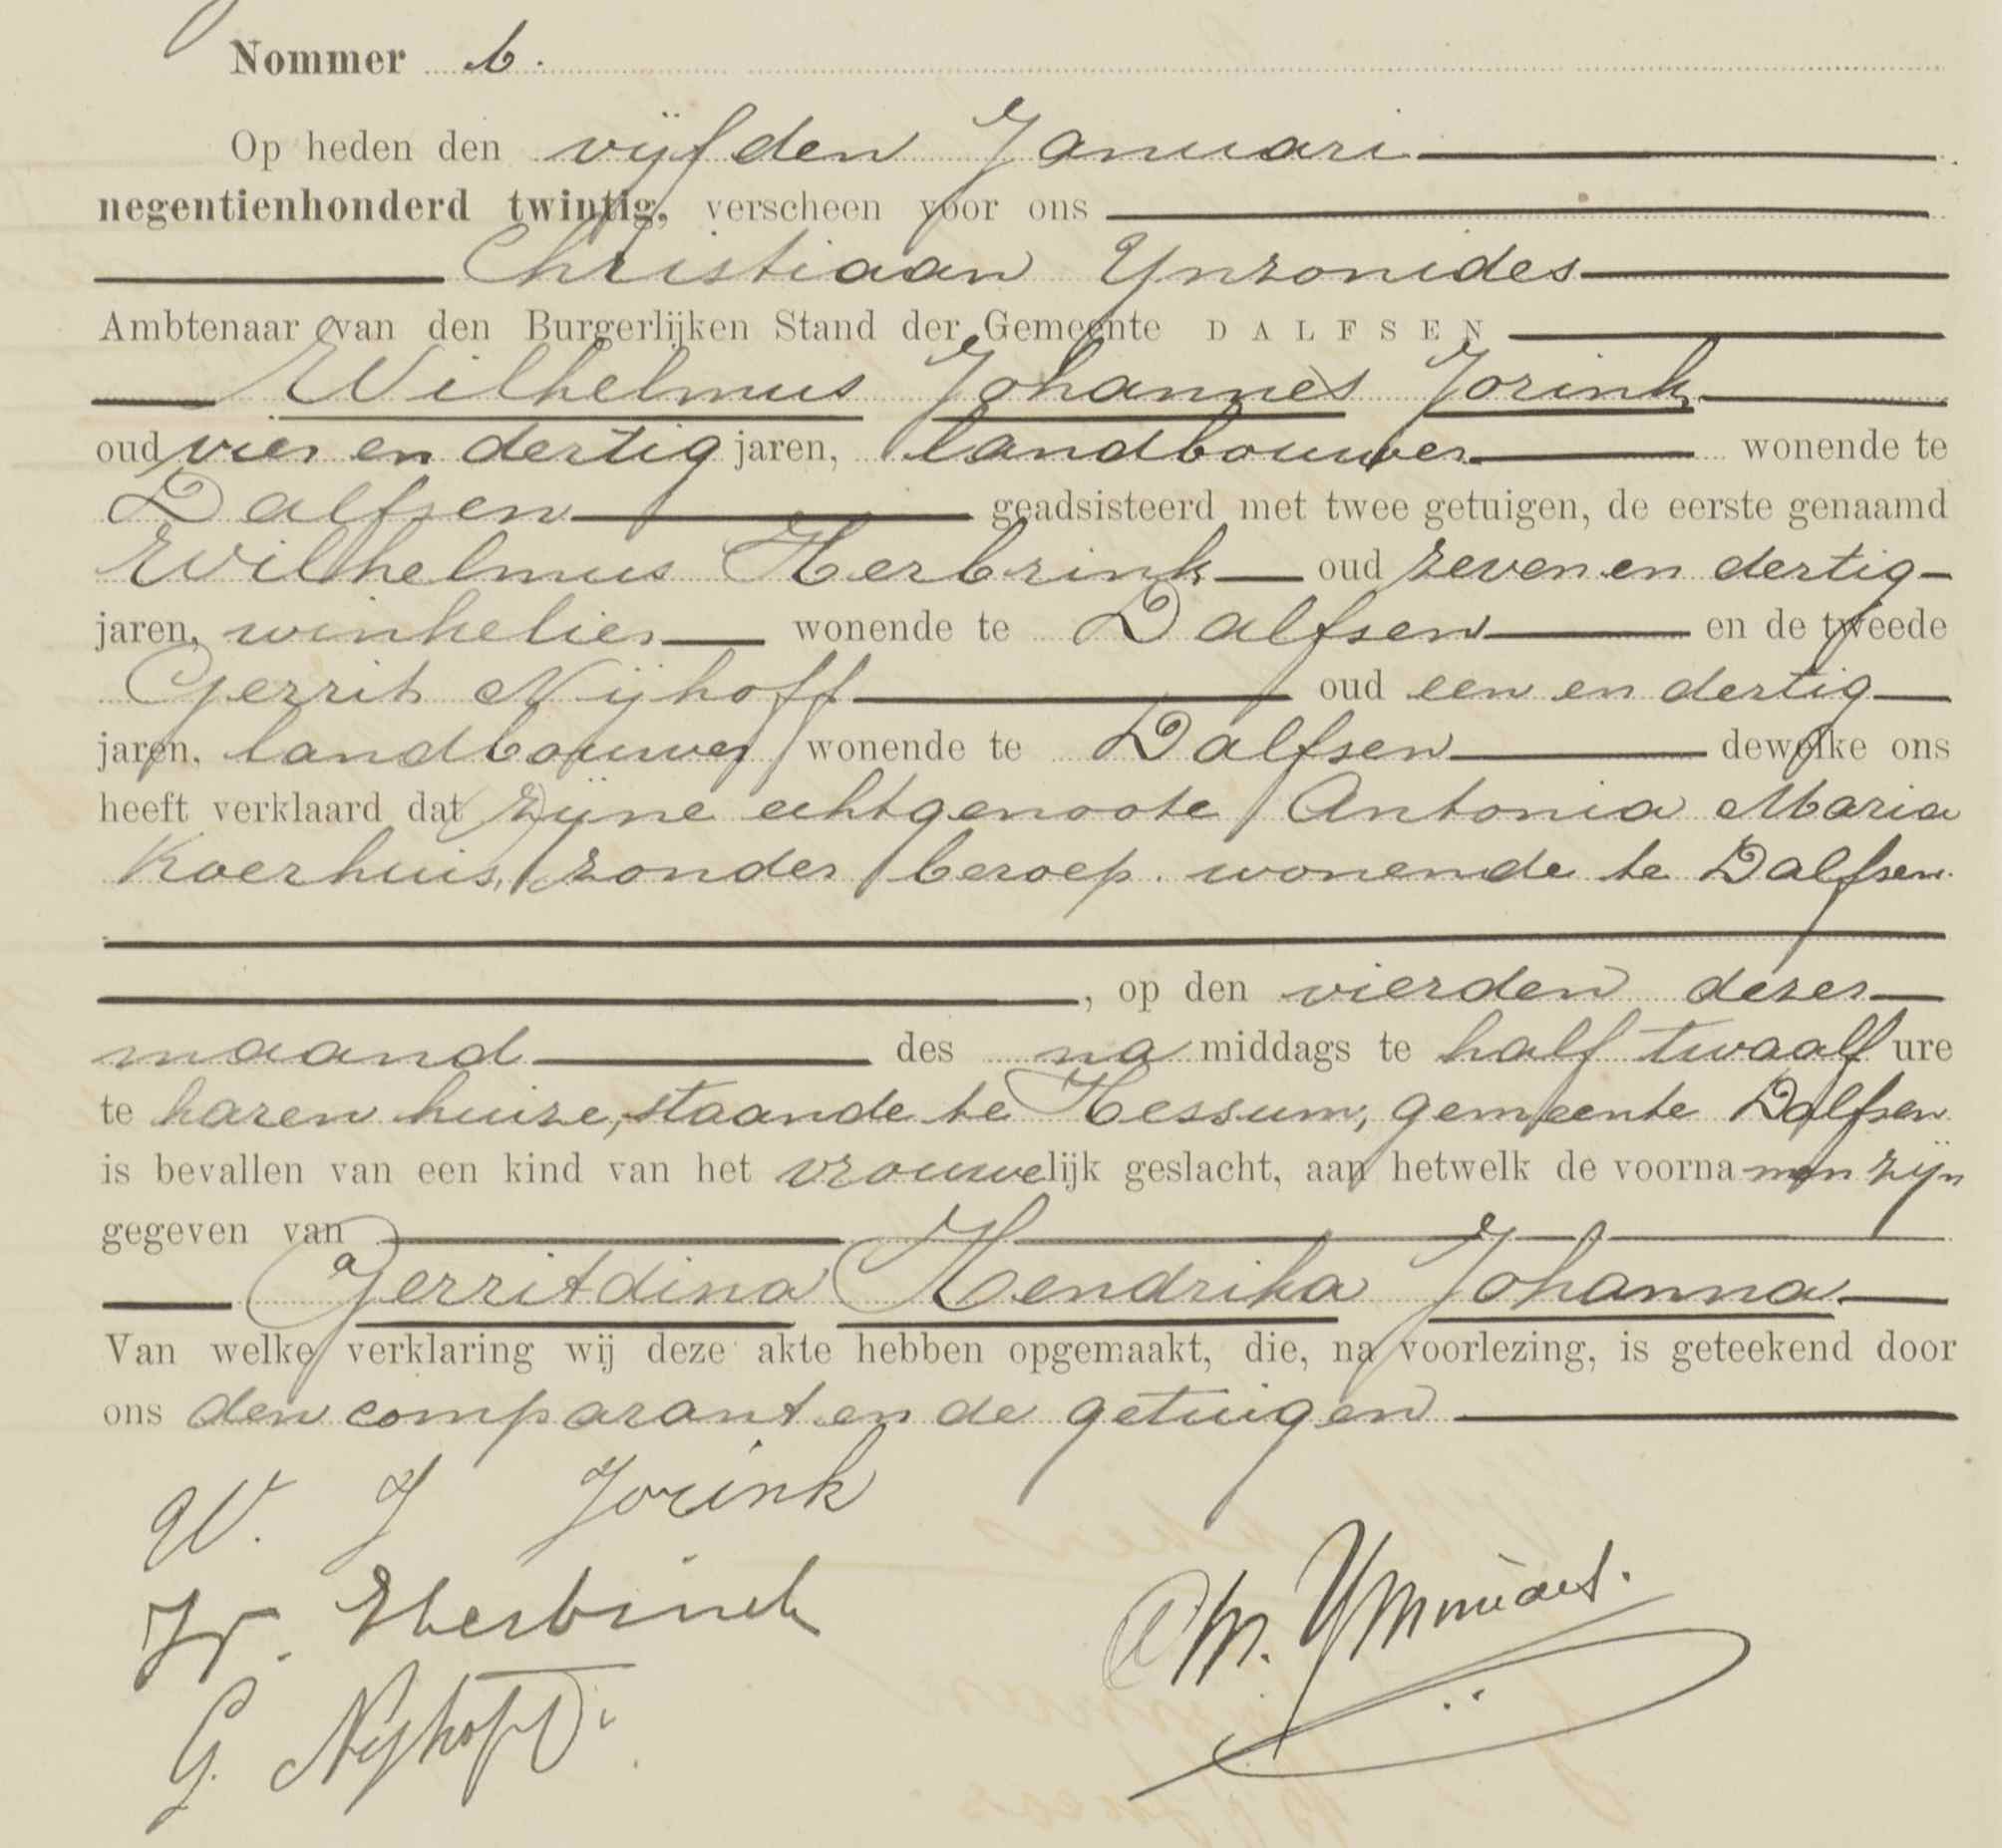 Nommer 6.
Op heden den vijfden Januari
negentienhonderd twintig, verscheen voor ons
Christiaan Ynzonides
Ambtenaar van den Burgerlijken Stand der Gemeente DALFSEN
Wilhelmus Johannes Jorink
oud vier en dertig jaren, landbouwer wonende te
Dalfsen geadsisteerd met twee getuigen, de eerste genaamd
Wilhelmus Herbrink oud zeven en dertig
jaren, winkelier wonende te Dalfsen en de tweede
Gerrit Nijhoff oud een en dertig
jaren, landbouwer wonende te Dalfsen dewelke ons
heeft verklaard dat zijne echtgenoote Antonia Maria
Koerhuis, zonder beroep. wonende te Dalfsen.
, op den vierden dezer
maand des na middags te half twaalf ure
te haren huize, staande te Hessum, gemeente Dalfsen
is bevallen van een kind van het vrouwelijk geslacht, aan hetwelk de voorna men zijn
gegeven van
Gerritdina Hendrika Johanna
Van welke verklaring wij deze akte hebben opgemaakt, die, na voorlezing, is geteekend door
ons den comparant en de getuigen
W. J Jorink
W. Herbrink
G. Nijhoff.